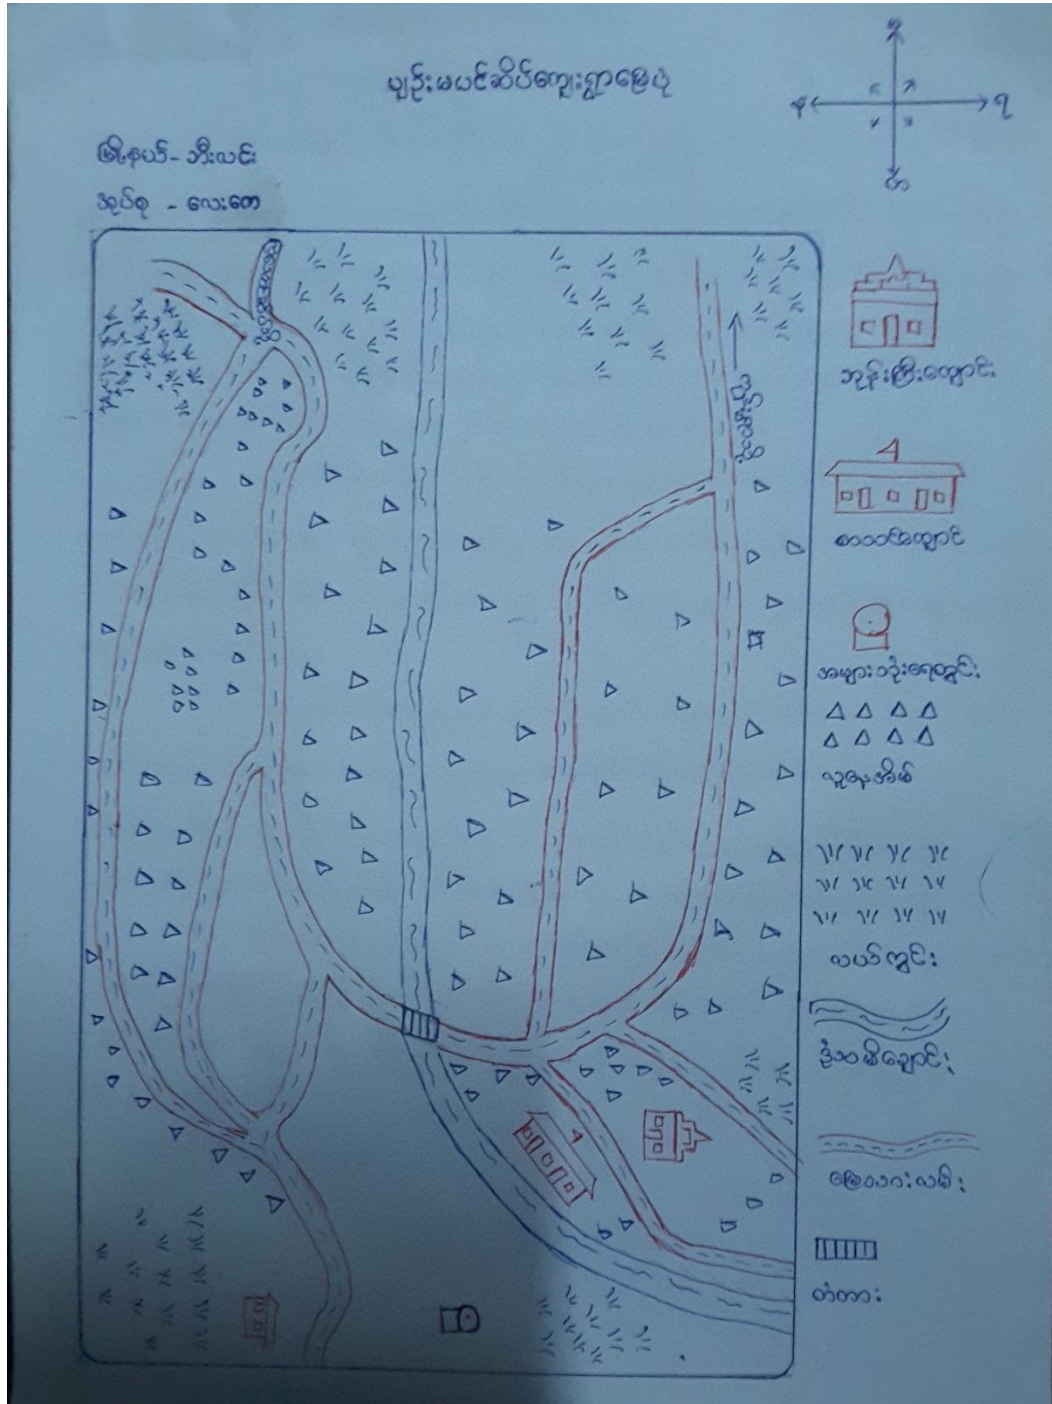 ပျဉ်းမပင်ဆိပ်ကျေးရွာမြေပုံ
မြို့နယ်- ဘီးလင်း
အုပ်စု - လေးကေ
ဘုန်းကြီးကျောင်း
စာသင်ကျောင်း
အများသုံးရေတွင်း
လူနေအိမ်
လယ်ကွင်း
ဒုံသမိချောင်း
မြေသားလမ်း
တံတား